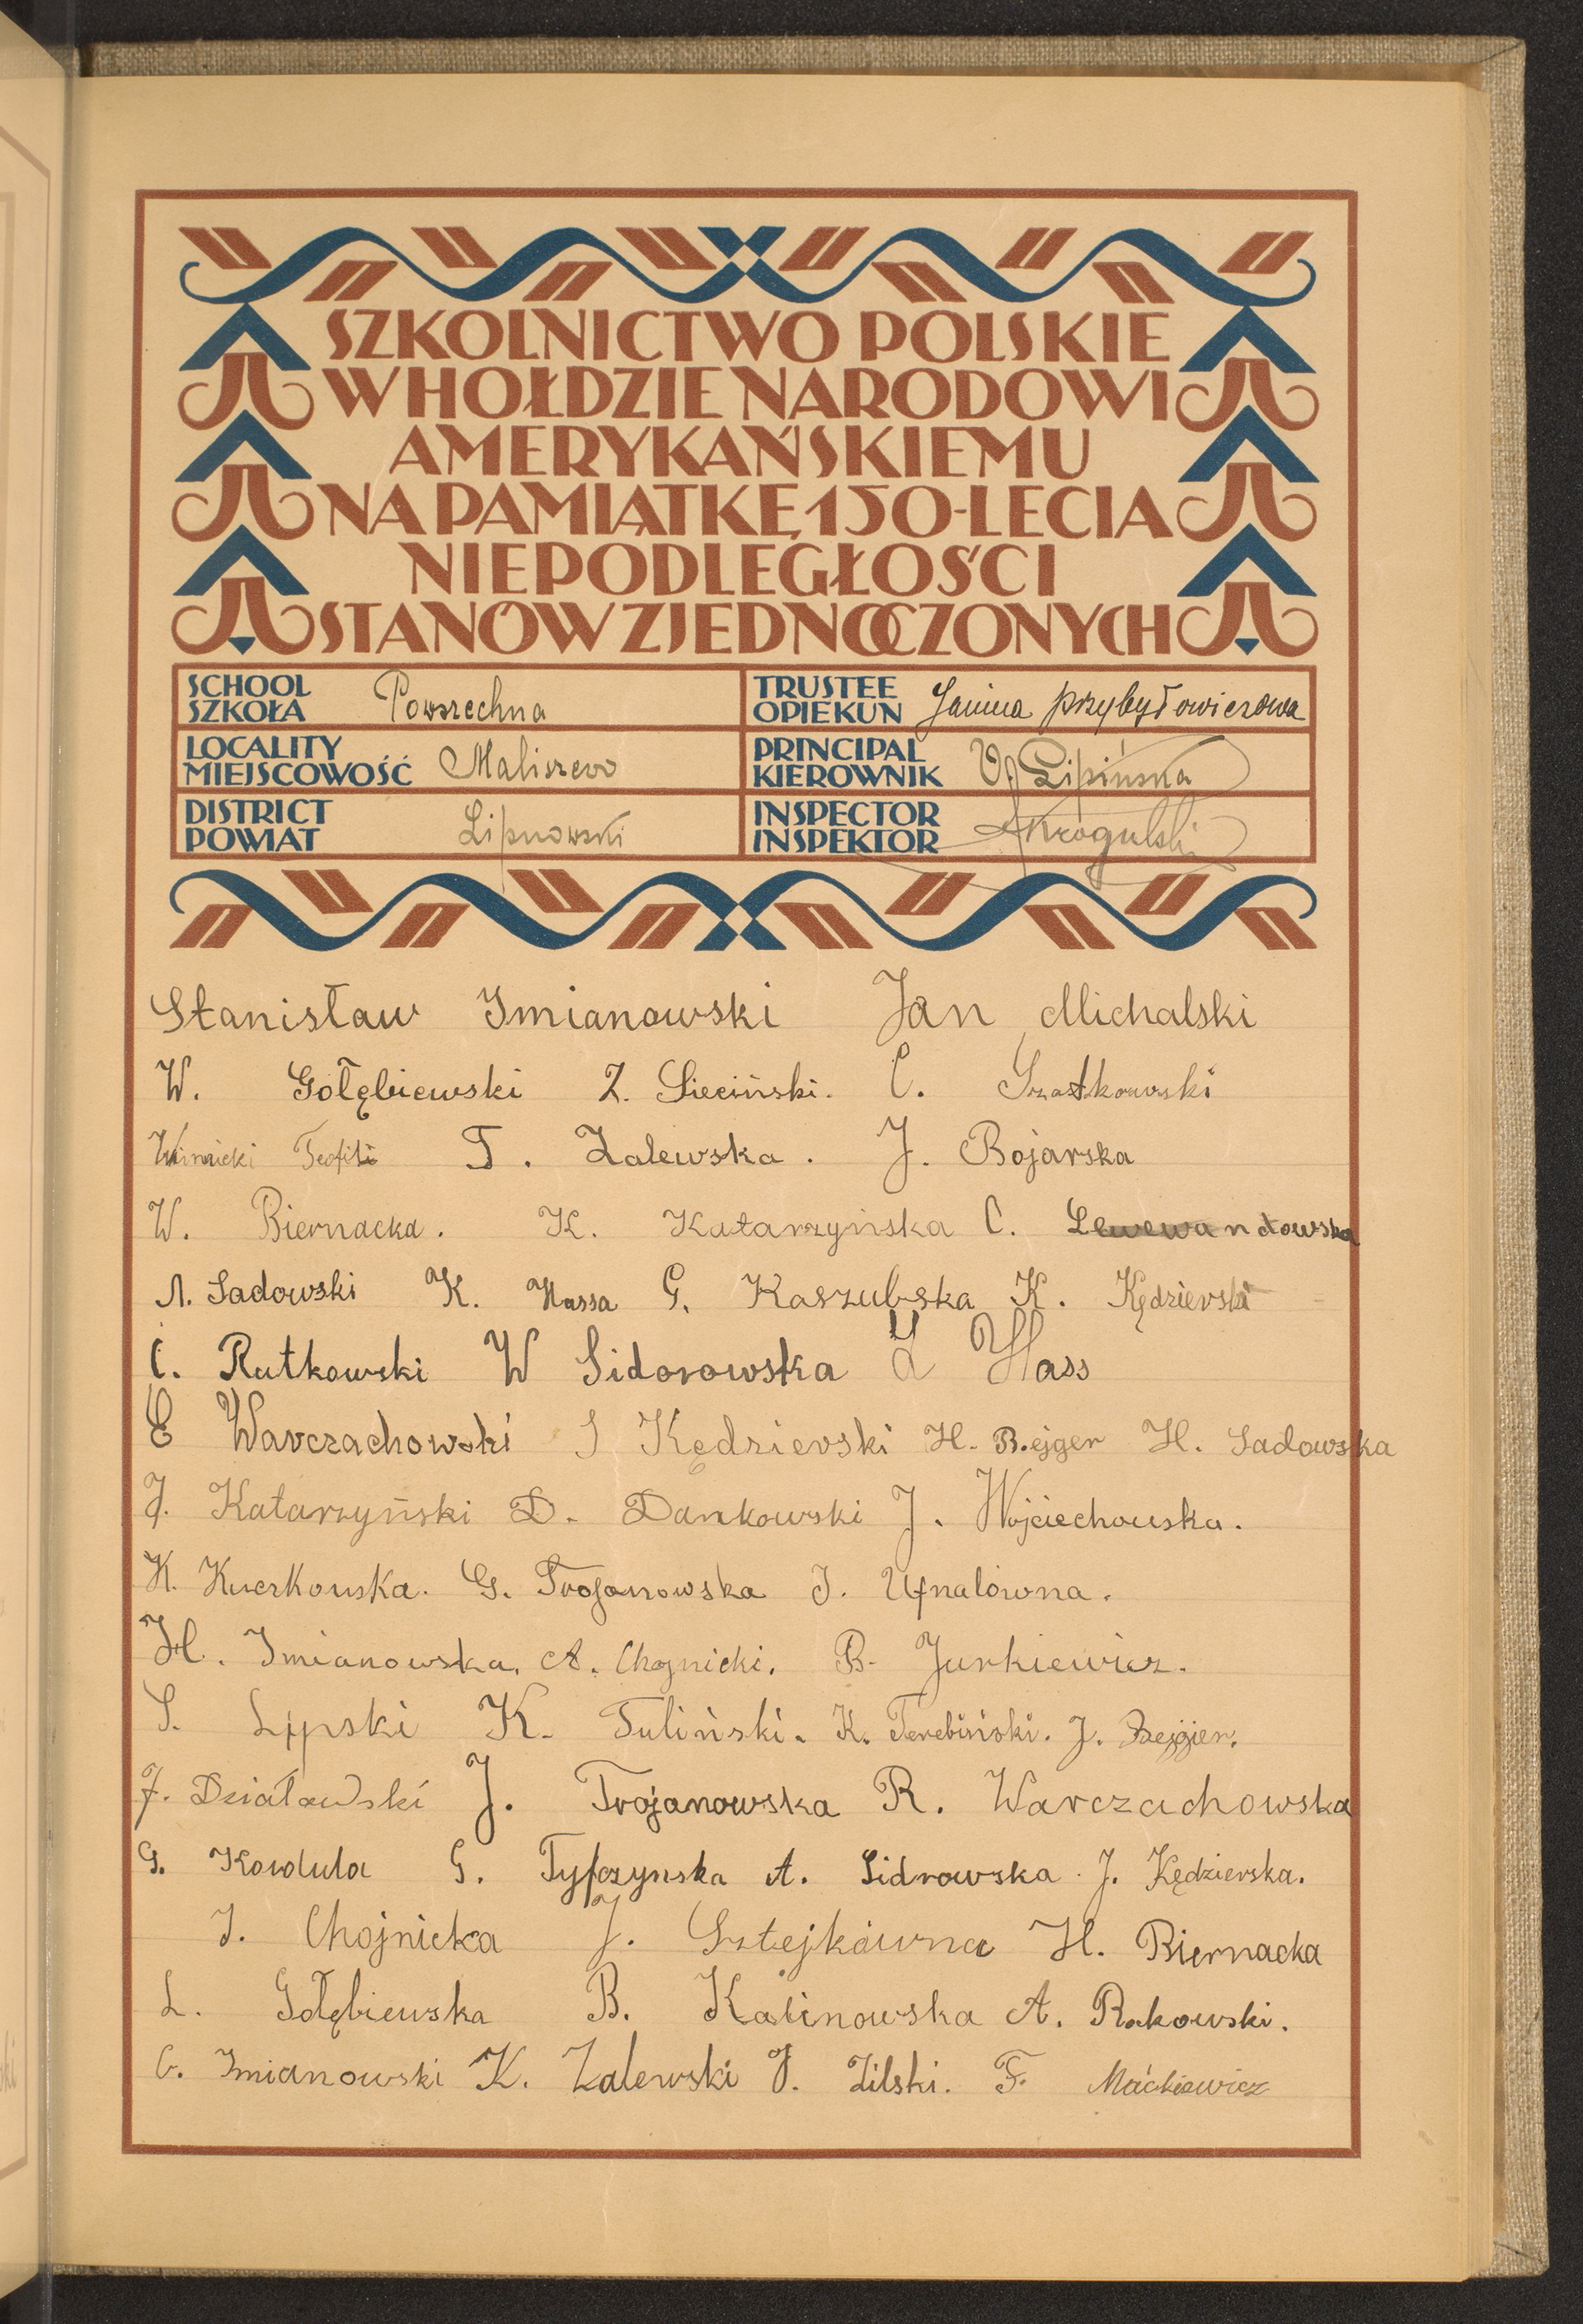 SZKOLNICTWO POLSKIE
W HOŁDZIE NARODOWI
AMERYKAŃSKIEMU
NA PAMIĄTKĘ 150-LECIA
NIEPODLEGŁOŚCI
STANÓW ZJEDNOCZONYCH
SCHOOL SZKOŁA Powszechna
TRUSTEE OPIEKUN Janina Przybyłowiczowa
LOCALITY MIEJSCOWOŚĆ Maliszewo
PRINCIPAL KIEROWNIK Lipińska
DISTRICT POWIAT Lipnowski
INSPECTOR INSPEKTOR Krogulski
Stanisław Imianowski Jan Michalski
W. Gołębiewski Z. Sieciński. C. Szatkowski
Winnicki Teofil T. Zalewska. J. Bojarska
W. Biernacka. K. Katarzyńska C. Lewewandowska
A. Sadowski K. Hassa G. Kaszubska K. Kędzierski
C. Rutkowski W Sidorowska Z Hass
E Warczachowski S Kędzierski H. Bejger H. Sadowska
J. Katarzyński D. Dankowski J. Wojciechowska.
K. Kwerkowska. G. Trojanowska J. Ufnalówna.
H. Imianowska. A. Chojnicki. B. Jurkiewicz.
S. Lipski K. Tuliński. K. Terebiński. J. Bejgier.
J. Działowski J. Trojanowska R. Warczachowska
G. Kowdula G. Tyfczynska A. Sidrowska J. Kędzierska.
J. Chojnicka J. Sztejkówna H. Biernacka
L. Gołębiewska B. Kalinowska A. Rakowski.
C. Imianowski K. Zalewski J. Zilski. F. Maćkiewicz